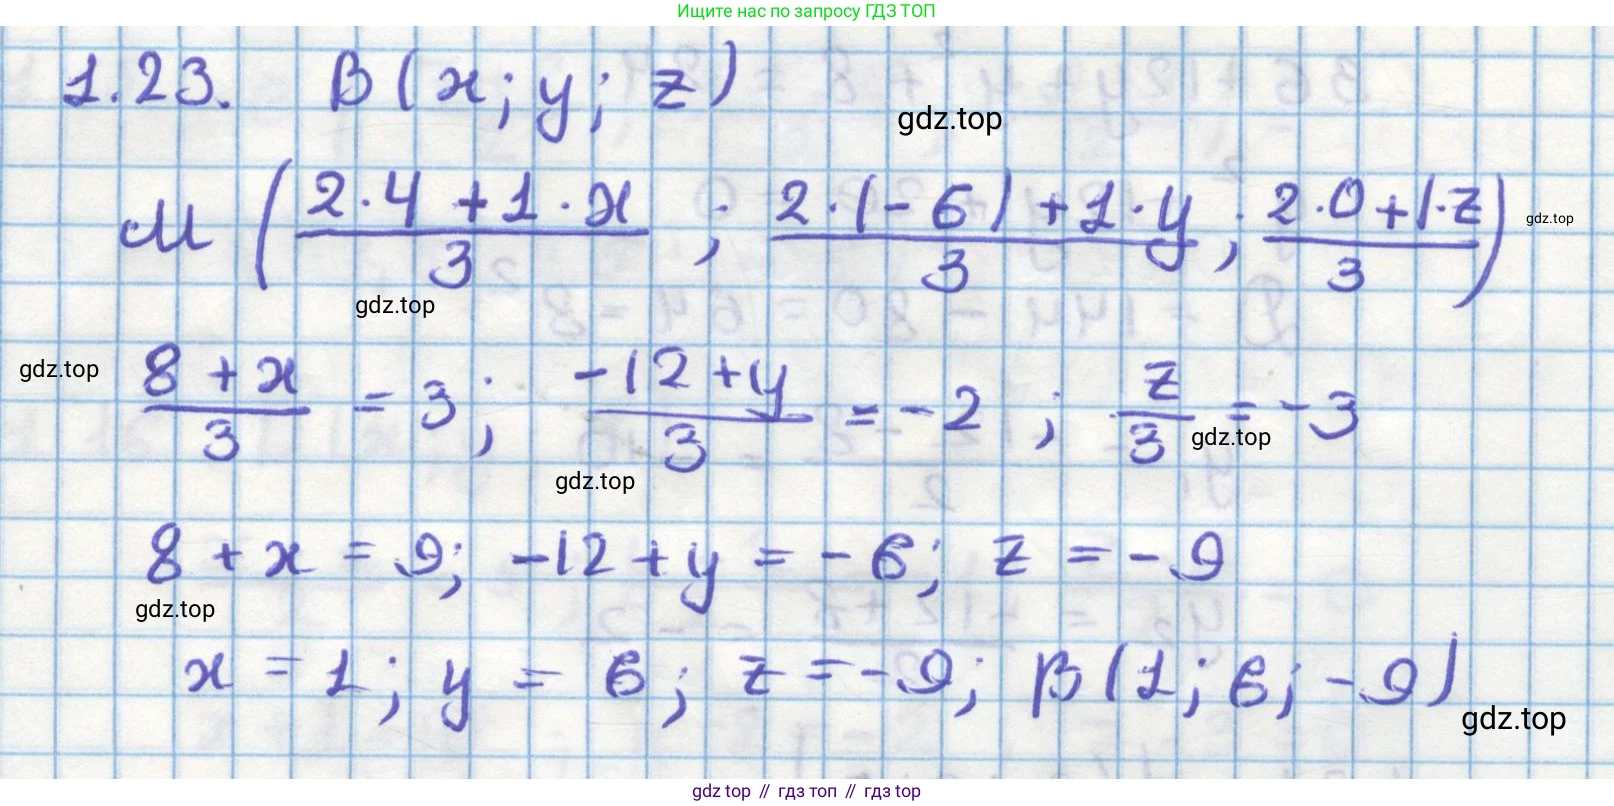 Ищите нас по запросу ГДЗ ТОП
1.23. B(x; y; z)
gdz.top
M ((2·4+1·x)/3 ; (2·(-6)+1·y)/3 ; (2·0+1·z)/3)
gdz.top
gdz.top
gdz.top
(8+x)/3 = 3; (-12+y)/3 = -2 ; z/3 = -3
gdz.top
gdz.top
8+x = 9; -12+y = -6; z = -9
gdz.top
x = 1; y = 6; z = -9; B(1; 6; -9)
gdz.top
gdz.top // гдз топ // гдз топ